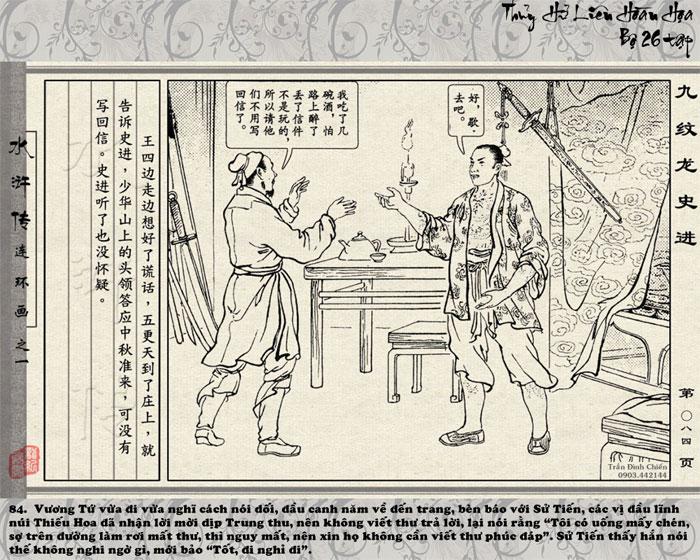 Thủy Hử Liên Hoàn Họa
Bộ 26 tập
九纹龙史进
第〇八四页
好，歇
去吧。
我吃了几
碗酒，怕
路上醉了
丢了信件
不是玩的，
所以请他
们不用写
回信了。
王四边走边想好了谎话，五更天到了庄上，就
告诉史进，少华山上的头领答应中秋准来，可没有
写回信。史进听了也没怀疑。
水浒传连环画之一
Trần Đình Chiến
0903.442144
84. Vương Tứ vừa đi vừa nghĩ cách nói dối, đầu canh năm về đến trang, bèn báo với Sử Tiến, các vị đầu lĩnh
núi Thiếu Hoa đã nhận lời mời dịp Trung thu, nên không viết thư trả lời, lại nói rằng “Tôi có uống mấy chén,
sợ trên đường làm rơi mất thư, thì nguy mất, nên xin họ không cần viết thư phúc đáp”. Sử Tiến thấy hắn nói
thế không nghi ngờ gì, mới bảo “Tốt, đi nghỉ đi”.